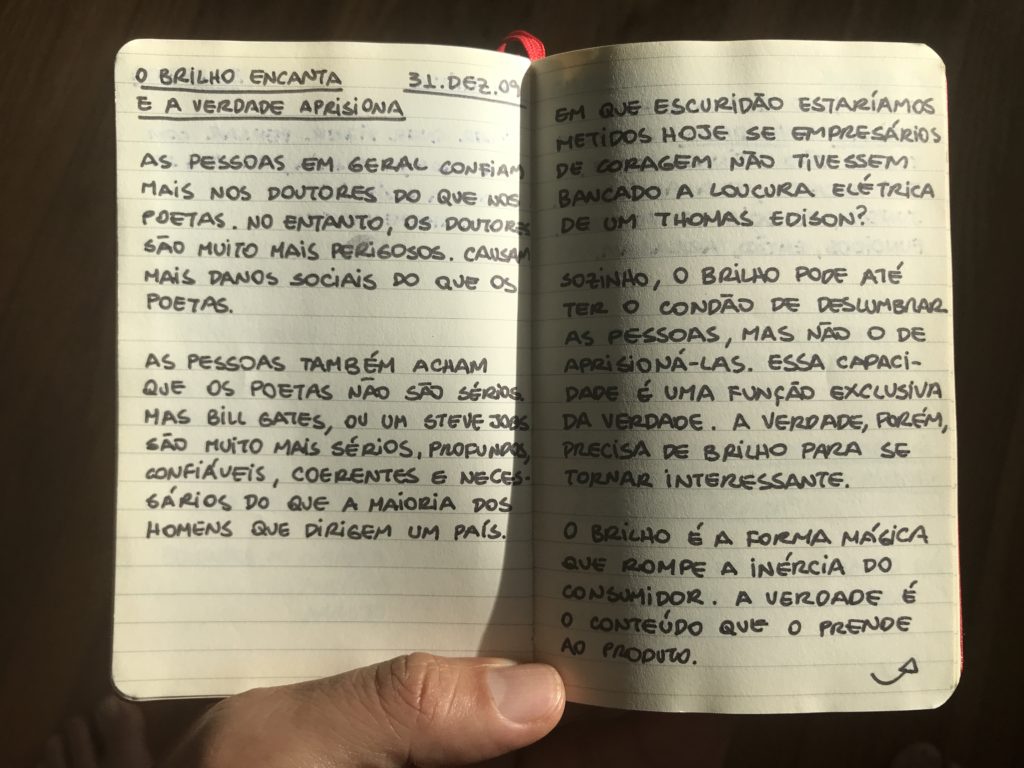 O BRILHO ENCANTA 31.DEZ.09
E A VERDADE APRISIONA
AS PESSOAS EM GERAL CONFIAM
MAIS NOS DOUTORES DO QUE NOS
POETAS. NO ENTANTO, OS DOUTORES
SÃO MUITO MAIS PERIGOSOS. CAUSAM
MAIS DANOS SOCIAIS DO QUE OS
POETAS.
AS PESSOAS TAMBÉM ACHAM
QUE OS POETAS NÃO SÃO SÉRIOS.
MAS BILL GATES, OU UM STEVE JOBS
SÃO MUITO MAIS SÉRIOS, PROFUNDOS,
CONFIÁVEIS, COERENTES E NECES-
SÁRIOS DO QUE A MAIORIA DOS
HOMENS QUE DIRIGEM UM PAÍS.
EM QUE ESCURIDÃO ESTARÍAMOS
METIDOS HOJE SE EMPRESÁRIOS
DE CORAGEM NÃO TIVESSEM
BANCADO A LOUCURA ELÉTRICA
DE UM THOMAS EDISON?
SOZINHO, O BRILHO PODE ATÉ
TER O CONDÃO DE DESLUMBRAR
AS PESSOAS, MAS NÃO O DE
APRISIONÁ-LAS. ESSA CAPACI-
DADE É UMA FUNÇÃO EXCLUSIVA
DA VERDADE. A VERDADE, PORÉM,
PRECISA DE BRILHO PARA SE
TORNAR INTERESSANTE.
O BRILHO É A FORMA MÁGICA
QUE ROMPE A INÉRCIA DO
CONSUMIDOR. A VERDADE É
O CONTEÚDO QUE O PRENDE
AO PRODUTO.